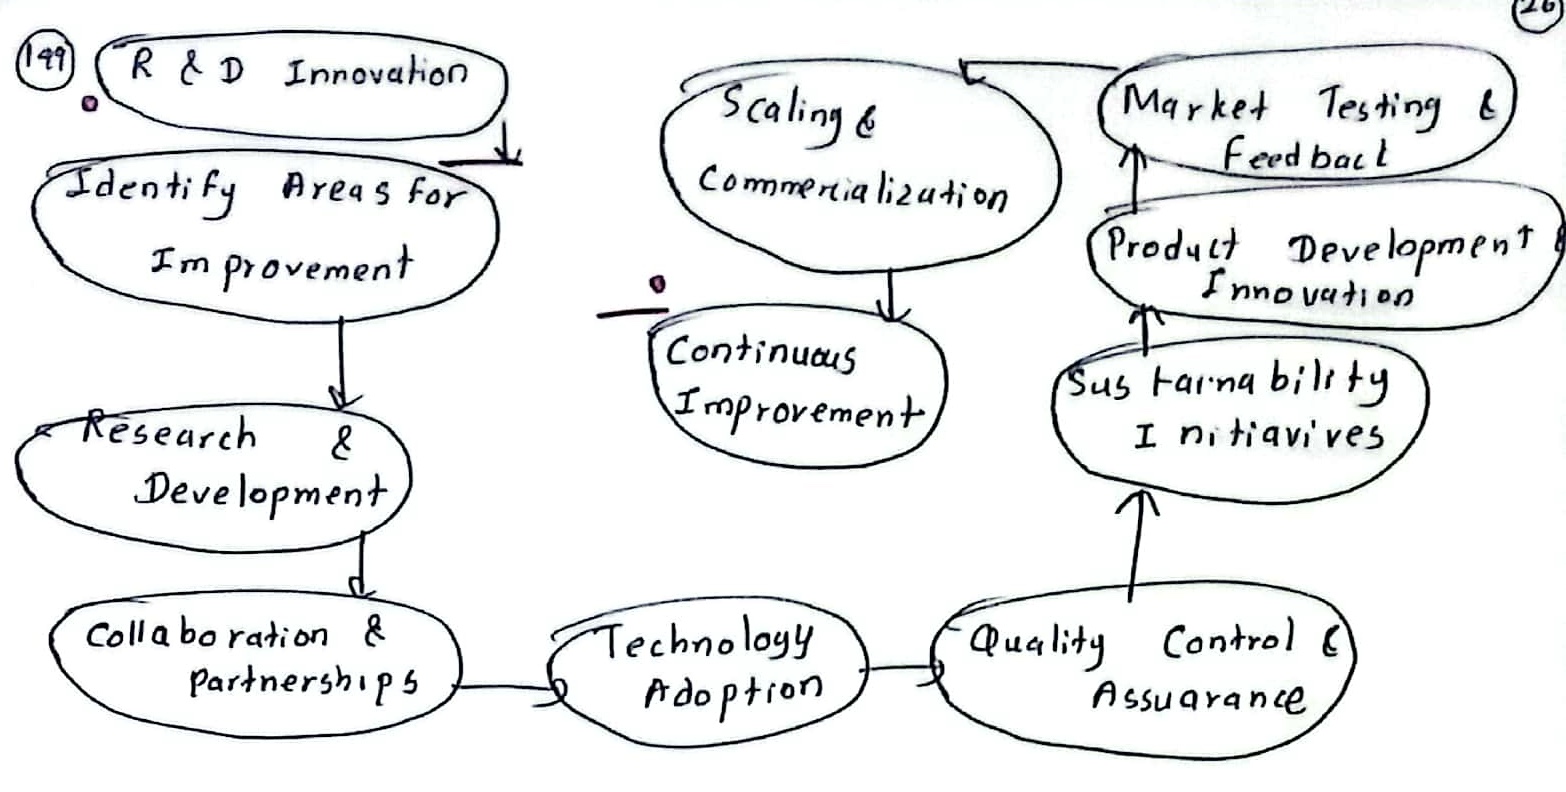 199
26
R & D Innovation
Identify Areas for
Improvement
Research &
Development
Collaboration &
Partnerships
Technology
Adoption
Quality Control &
Assuarance
Sustainability
Initiavives
Product Development &
Innovation
Market Testing &
Feedback
Scaling &
Commercialization
Continuous
Improvement